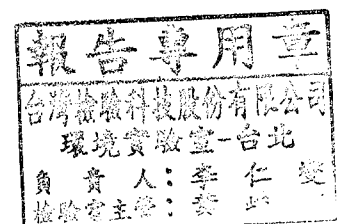 報告專用章
台灣檢驗科技股份有限公司
環境實驗室-台北
負責人：李仁
檢驗室主管：